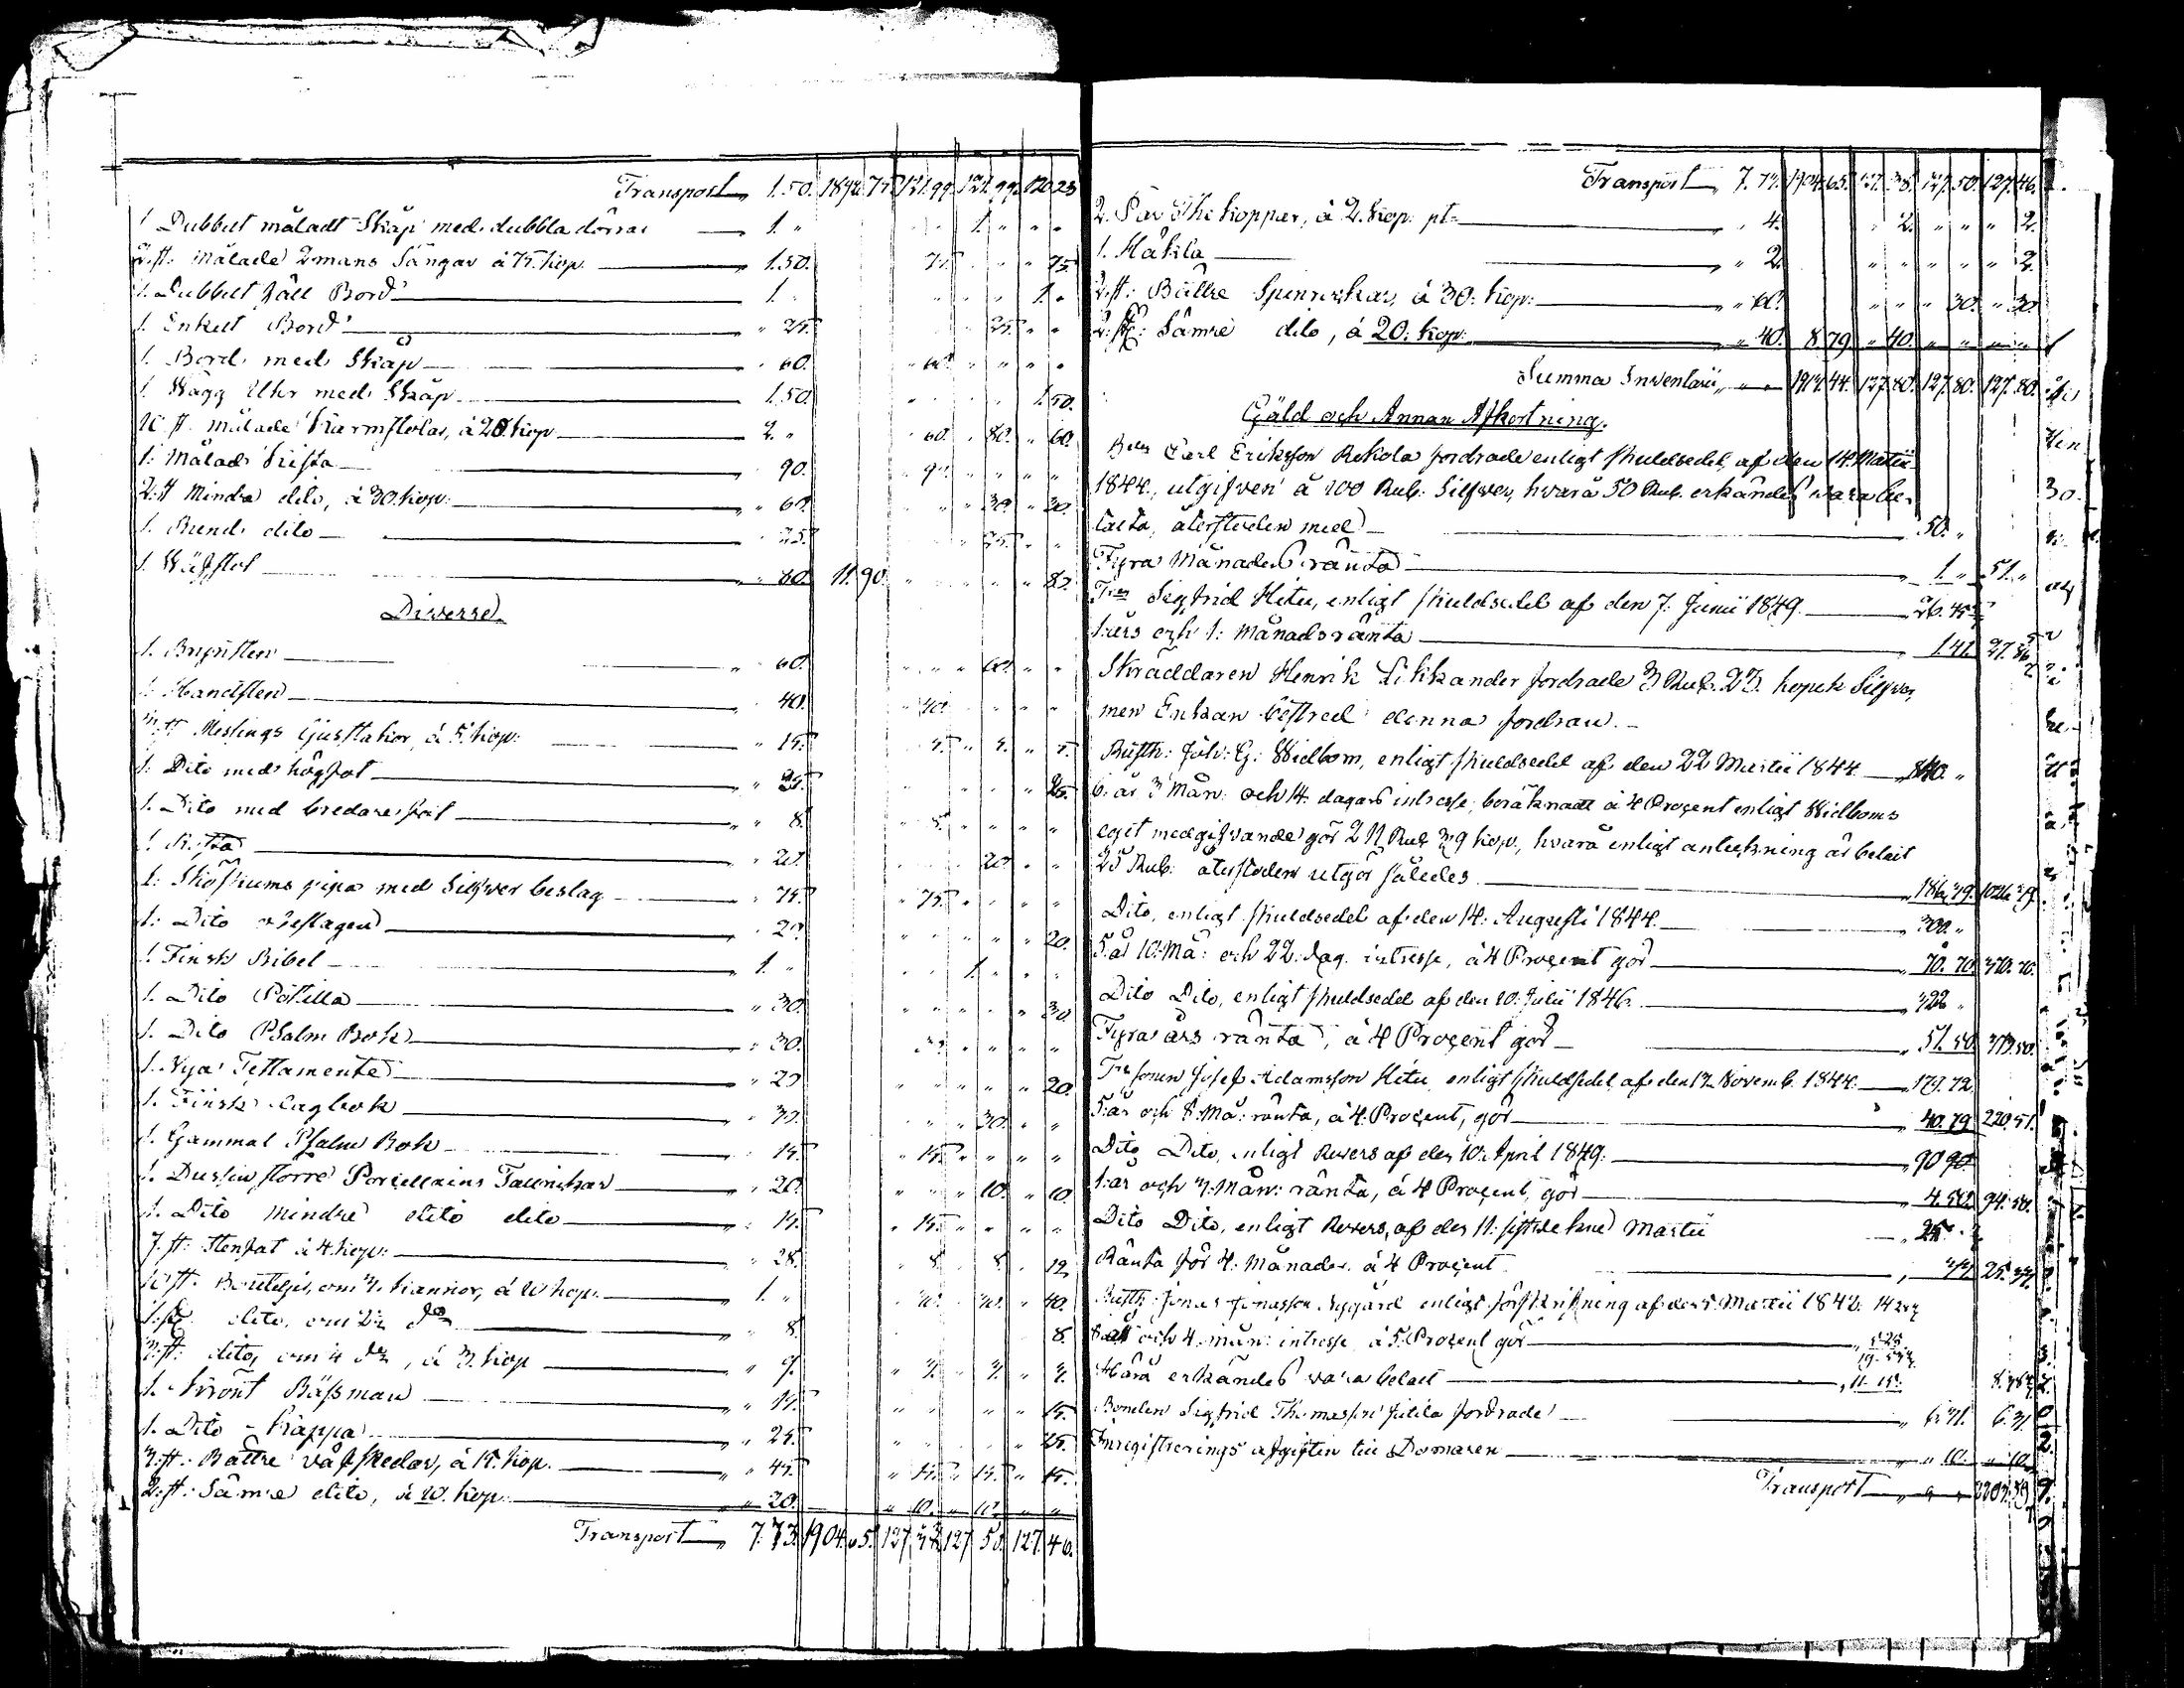 Transport 1.50. 1892. 75. 121. 99. 121. 99. 120. 23
1 Dubbelt måladt Skåp med dubbla dörrar 1. " 1. " " "
2. st: Målade 2 mans Sängar à 75. kop. " 1.50. 75. " " " 75.
1. Dubbelt fäll Bord 1. " 1. "
1. Enkelt Bord " 25. 25. " "
1. Bord med Skåp " 60. " 60. " " " "
1. Wägg Uhr med Skåp 1.50. 1.50.
10 st. målade Karmstolar, à 20. kop 2. " " 60. " 80. " 60.
1: Målad Kista " 90. " 90. " " " "
2. st Mindre dito, à 30. kop. " 60. " " 30. " 30.
1. Rund dito " 25. " 25. " "
1. Wäfstol " 80. 11. 90. " " " " 80.
Diverse
1. Brynsten " 60. " " " 60. " "
1: Handsten " 40. " 40. " " " "
3. st Messings ljusstakor, à 5. kop: " 15. " 5. " 5. " 5.
1: Dito med hög fot " 25. " " " " " 25.
1. Dito med bredare fot " 8. " 8. " " " "
1. " 20. 20. " "
1: Sköskums pipa med Silfver beslag " 75. " 75. " " " "
1: Dito obeslagen " 20. " " " " " 20.
1. Finsk Bibel 1. " 1. " " "
1. Dito Postilla " 30. " " " " " 30.
1. Dito Psalm Bok " 30. 30. " " " "
1. Nya Testamente " 20 " " " " " 20.
1. Finsk Lagbok " 30. " " " 30. " "
1. Gammal Psalm Bok " 15. " 15. " " " "
1. Dussin större Porcellains Tallrickar " 20. " " " 10. " 10.
1. Dito mindre dito dito " 15. " 15. " " " "
7. st: Stenfat à 4. kop: " 28. " 8. 8. " 12
10 st. Bouteljer, om 3/4 kannor, à 10 kop. 1. " " 30. " 30. " 40.
1. st dito, om 2 " 8. 8.
3. st: dito, om 4 , à 3. kop " 9. " 3. " 3. " 3.
1. Krönt Båssman " 15. " " " " " 15.
1. Dito - Kappa " 25. " 25.
3. st: Bättre våfskedar, à 15. kop. " 45. " 15. " 15. " 15.
2. st: Sämre dito, à 10. kop: " 20. " 10. " 10. " "
Transport 7. 73. 1904. 65. 127. 38. 127. 50. 127. 46.
Transport 7. 73. 1904. 65. 127. 38. 127. 50. 127. 46.
2. Par The koppar, à 2. kop: pt " 4. " 2. " " " 2.
1. Häkila " 2. " " " " " 2.
2. st: Bättre Spinrockar, à 30. kop: " 60. " " " 30. " 30.
2. st: Sämre dito, à 20: kop: " 40. 8. 79. " 40. " " " "
Summa Inventarii 1913. 44. 127. 80. 127. 80. 127. 80.
Gäld och Annan Afkortning.
Carl Eriksson Rekola fordrade enligt skuldsedel af den 14. Martii
1844., utgifven à 100 Rub: Silfver, hvarå 50 Rub. erkändes vara be-
talta, återstoden med 50. "
Fyra Månaders ränta 1. " 51. "
Sigfrid Hitu, enligt skuldsedel af den 7. Junii 1849. 26. 45
1. års och 1. Månads ränta 1.41. 27. 86
Skräddaren Henrik Likkander fordrade 3 Rub. 23. kopek Silfver,
men Enkan bestred denna fordran. -
Rusth: Joh: G: Widbom, enligt skuldsedel af den 22 Martii 1844 840. "
6. år 3 Mån: och 14. dagars intresse, beräknadt à 4 Procent enligt Widboms
eget medgifvande gör 211 Rub 39 kop., hvarå enligt anteckning är betalt
25 Rub: återstoden utgör således 186. 39. 1026. 39.
Dito, enligt skuldsedel af den 14. Augusti 1844. 300. "
5. år 10. Må: och 22. dag. intresse, à 4 Procent gör 70. 70. 370. 70.
Dito Dito, enligt skuldsedel af den 10. Julii 1846. 322 "
Fyra års ränta, à 4 Procent gör 51. 50. 373. 50.
Josef Adamsson Hitu enligt skuldsedel af den 12 Novemb. 1844. 179. 72.
5. år och 8. Må: ränta, à 4. Procent, gör 40. 79 220. 51.
Dito Dito, enligt Revers af den 10. April 1849. 90 90
1: år och 3. Mån: ränta, à 4 Procent, gör 4. 50. 94. 50.
Dito Dito, enligt Revers, af den 11. sistledne Martii 25. "
Ränta för 4. Månader à 4 Procent " 33 25. 33
Rusth: Jonas Jonasson Nygård enligt förskrifning af den 5. Martii 1842.
8 år och 4. mån: intresse à 5. Procent gör
Härå erkändes vara betalt 11. 15.
Bonden Sigfrid Thomasson Julila fordrade 6. 31. 6. 31
Inregistrerings afgiften till Domaren " 10. " 10.
Transport